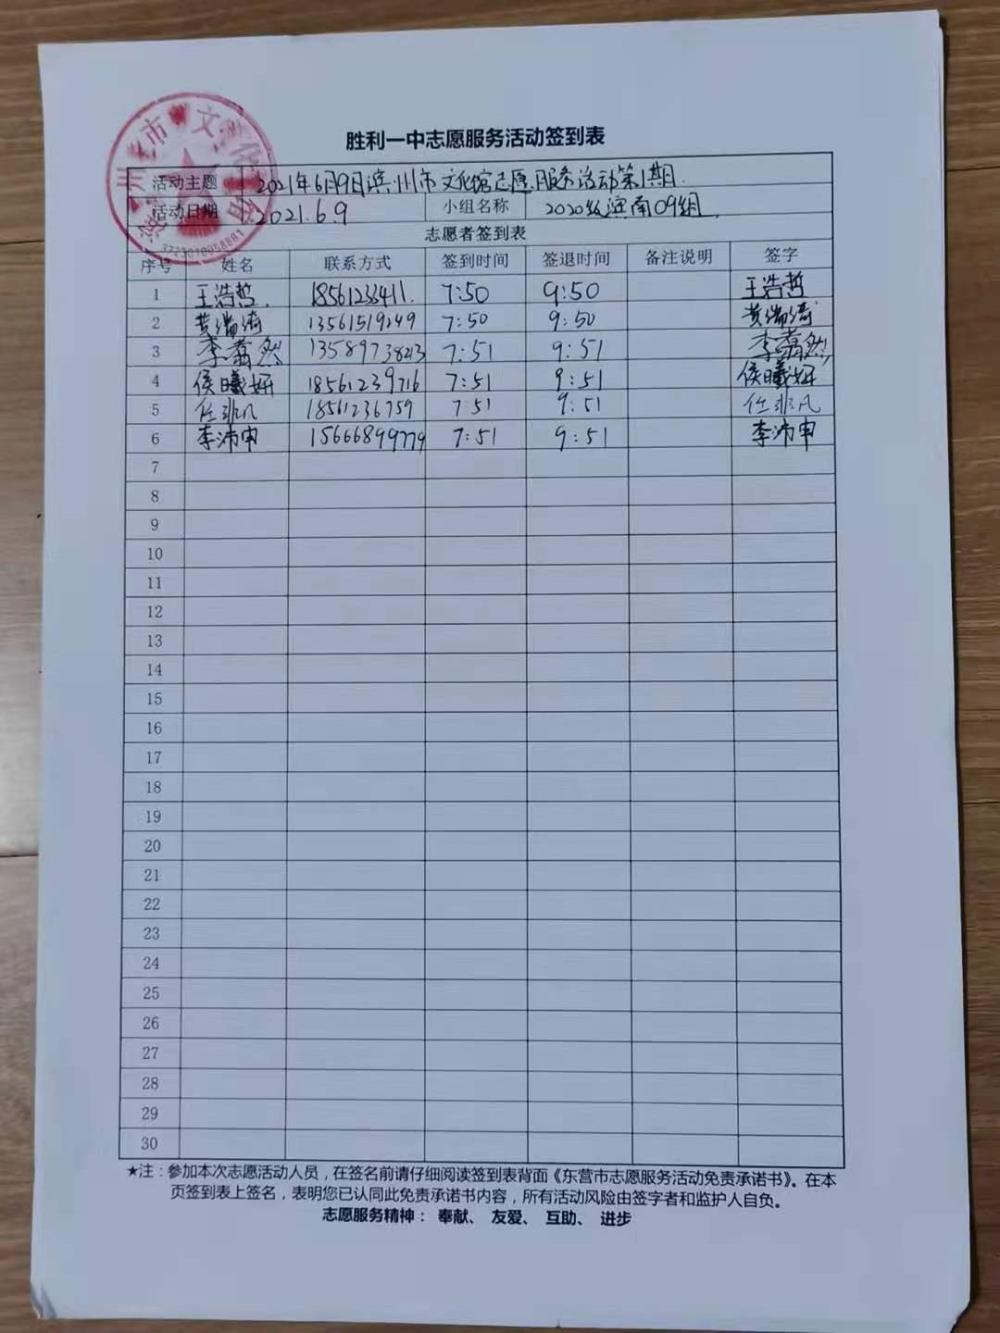 胜利一中志愿服务活动签到表
活动主题 2021年6月9日滨州市文化馆志愿服务活动第1期.
活动日期 2021.6.9 小组名称 2020级滨南09组
志愿者签到表
序号 姓名 联系方式 签到时间 签退时间 备注说明 签字
1 王浩哲 18561233411. 7:50 9:50 王浩哲
2 黄瑞绮 13561519249 7:50 9:50 黄瑞绮
3 李荔然 13589738213 7:51 9:51 李荔然
4 侯曦妍 18561239716 7:51 9:51 侯曦妍
5 任非凡 18561236759 7:51 9:51 任非凡
6 李沛申 15666899779 7:51 9:51 李沛申
7
8
9
10
11
12
13
14
15
16
17
18
19
20
21
22
23
24
25
26
27
28
29
30
★注：参加本次志愿活动人员，在签名前请仔细阅读签到表背面《东营市志愿服务活动免责承诺书》。在本
页签到表上签名，表明您已认同此免责承诺书内容，所有活动风险由签字者和监护人自负。
志愿服务精神： 奉献、 友爱、 互助、 进步